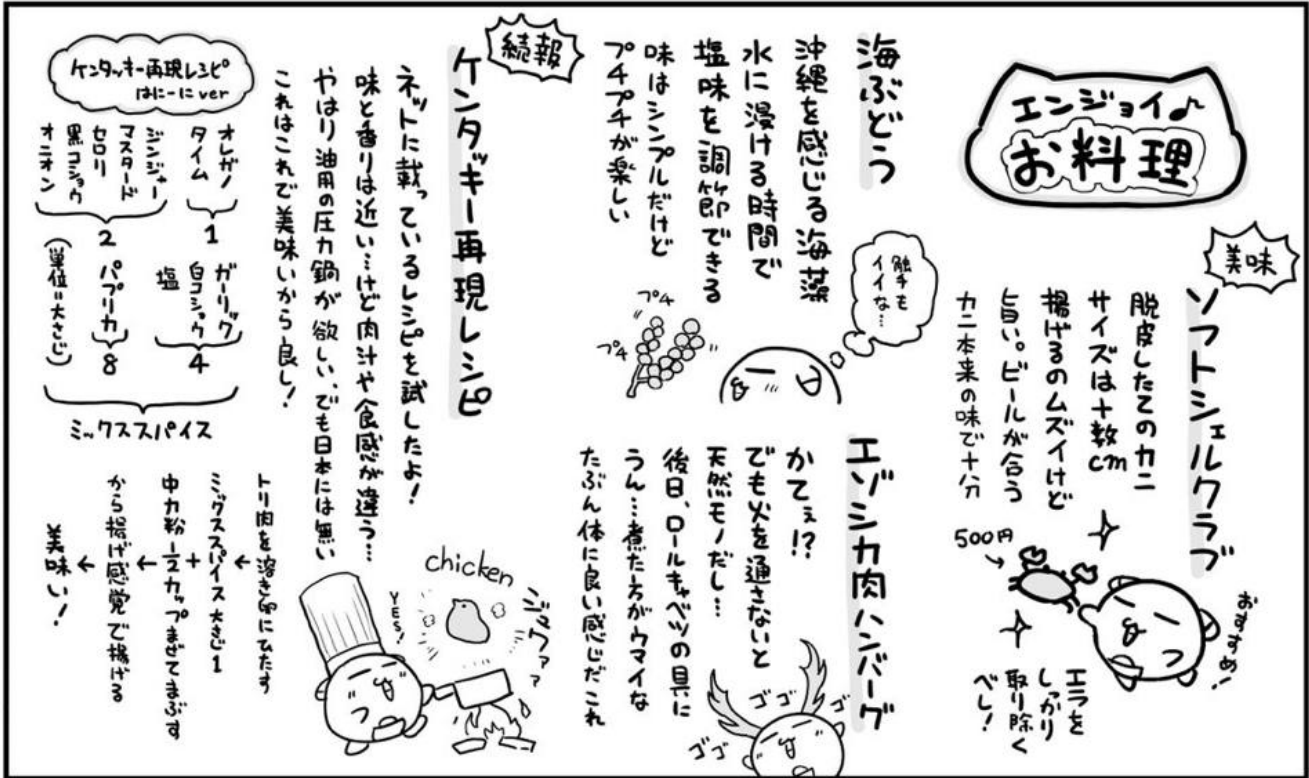 エンジョイ♪
お料理
美味
ソフトシェルクラブ
脱皮したてのカニ
サイズは十数cm
揚げるのムズイけど
旨い。ビールが合う
カニ本来の味で十分
500円
おすすめ!
エラを
しっかり
取り除く
べし!
海ぶどう
沖縄を感じる海藻
水に浸ける時間で
塩味を調節できる
味はシンプルだけど
プチプチが楽しい
触手も
イイな…
プチ
プチ
エゾシカ肉ハンバーグ
かてぇ!?
でも火を通さないと
天然モノだし…
後日、ロールキャベツの具に
うん…煮た方がウマイな
たぶん体に良い感じだこれ
ゴゴゴ
ゴゴ
続報
ケンタッキー再現レシピ
ネットに載っているレシピを試したよ!
味と香りは近い…けど肉汁や食感が違う…
やはり油用の圧力鍋が欲しい、でも日本には無い
これはこれで美味いから良し!
chicken
YES!
ジュワァァ
ケンタッキー再現レシピ
はにーにver
オレガノ
タイム
1
ジンジャー
マスタード
セロリ
黒コショウ
オニオン
2
ガーリック
白コショウ
塩
4
パプリカ
8
(単位=大さじ)
ミックススパイス
トリ肉を溶き卵にひたす
↓
ミックススパイス大さじ1
+
中力粉1/2カップまぜてまぶす
↓
から揚げ感覚で揚げる
↓
美味い!